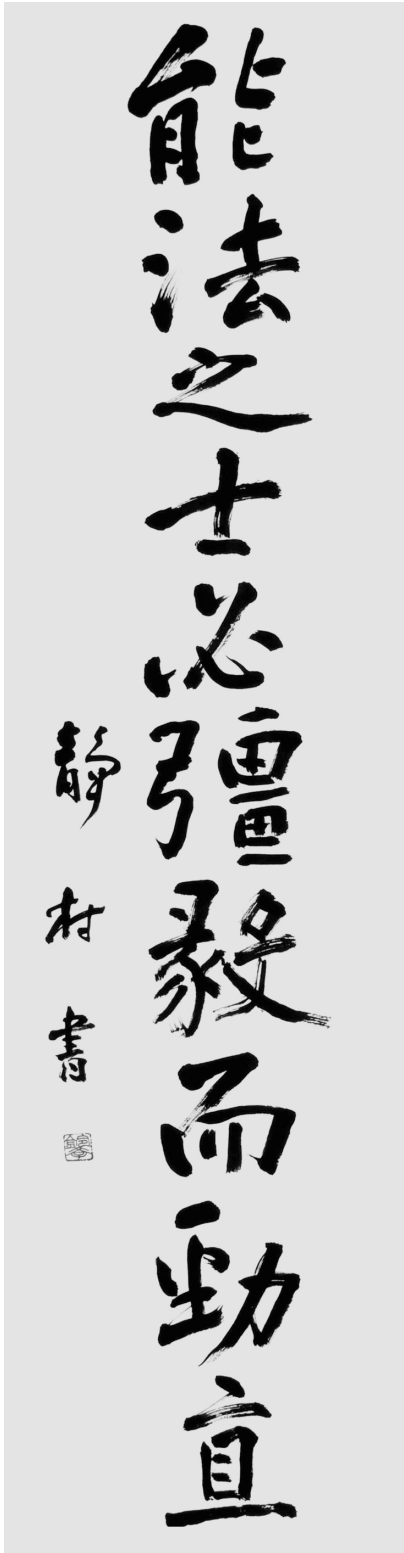 能法之士必彊毅而勁直
靜村書